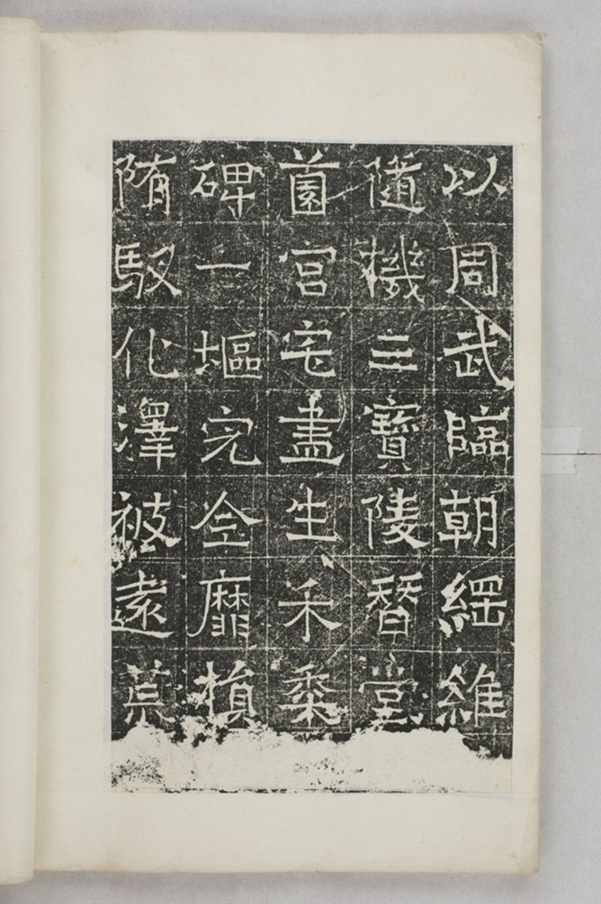 以周武臨朝綱維
機三寶陵替堂
薗宮宅盡生禾黍
碑一塸完全靡損
隋馭化澤被遠荒